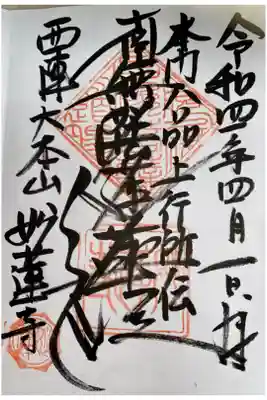 令和四年四月一日
本門八品上行所伝
南無妙法蓮華経
西陣大本山 妙蓮寺